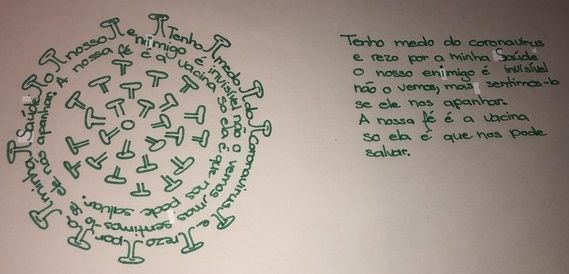 Tenho medo do coronavírus
e rezo por a minha Saúde
O nosso enimigo é invisível
não o vemos, mas sentimos-o
se ele nos apanhar.
A nossa fé é a vacina
so ela é que nos pode
salvar.
Tenho medo do Coronavírus e rezo por a minha Saúde. O nosso enimigo é invisível não o vemos, mas sentimos-to se ele nos apanhar. A nossa fé é a vacina so ela é que nos pode salvar.